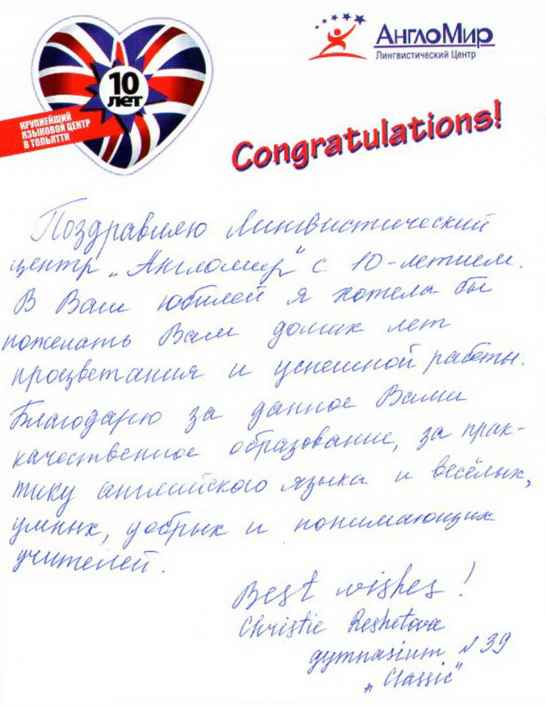 10
ЛЕТ
КРУПНЕЙШИЙ
ЯЗЫКОВОЙ ЦЕНТР
В ТОЛЬЯТТИ
АнглоМир
Лингвистический Центр
Congratulations!
Поздравляю Лингвистический
центр „Англомир" с 10-летием.
В Ваш юбилей я хотела бы
пожелать Вам долгих лет
процветания и успешной работы.
Благодарю за данное Вами
качественное образование, за прак-
тику английского языка и весёлых,
умных, добрых и понимающих
учителей.
Best wishes!
Christie Reshetova
gymnasium №39
„Classic"